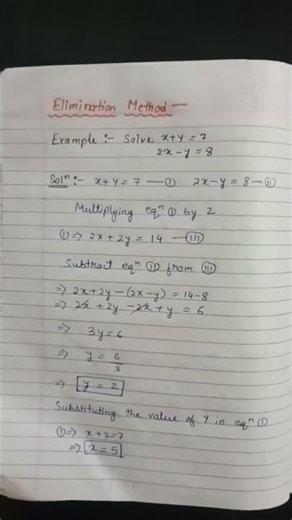 Elimination Method —
Example :- Solve x+y=7
2x-y=8
Solⁿ:- x+y=7 — (i) 2x-y=8 — (ii)
Multiplying eqⁿ (i) by 2
(i)⇒ 2x+2y = 14 — (iii)
Subtract eqⁿ (ii) from (iii)
⇒ 2x+2y-(2x-y) = 14-8
⇒ 2x+2y-2x+y = 6
⇒ 3y=6
⇒ y = 6/3
⇒ y = 2
Substituting the value of y in eqⁿ (i)
(i)⇒ x+2=7
⇒ x=5